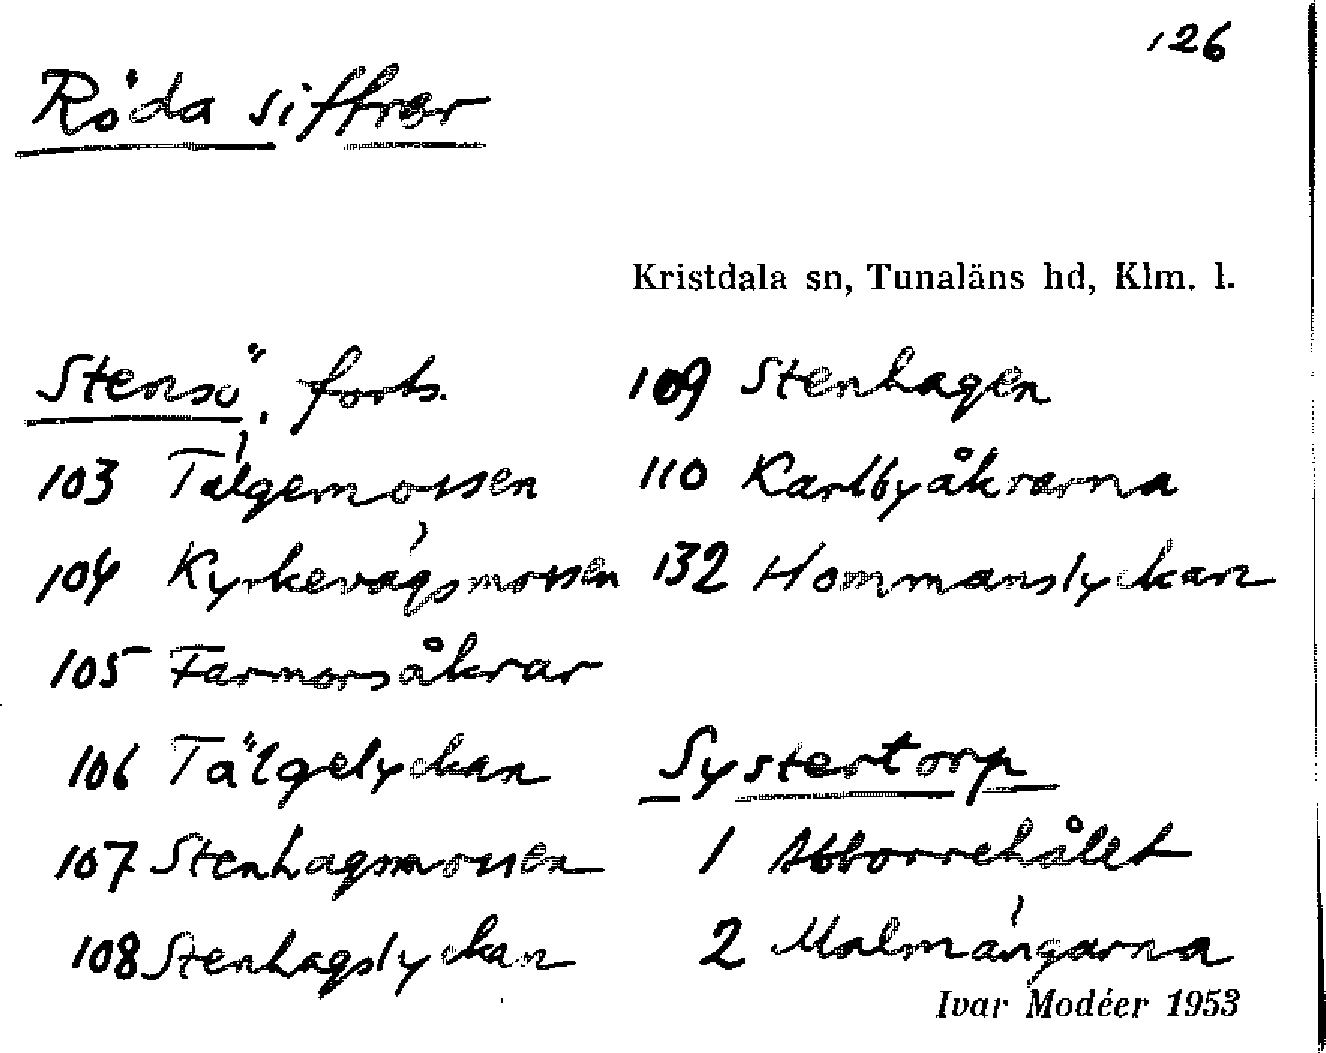 126
Röda siffror
Kristdala sn, Tunaläns hd, Klm. l.
Stensö, forts.
103 Tälgemossen
104 Kyrkevägsmossen
105 Farmorsåkrar
106 Tälgelyckan
107 Stenhagsmossen
108 Stenhagslyckan
109 Stenhagen
110 Karlbyåkrarna
132 Hommanslyckan
Systertorp
1 Abborrehålet
2 Malmängarna
Ivar Modéer 1953